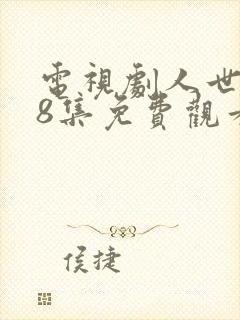 電視劇人世
8集免費觀看
侯捷